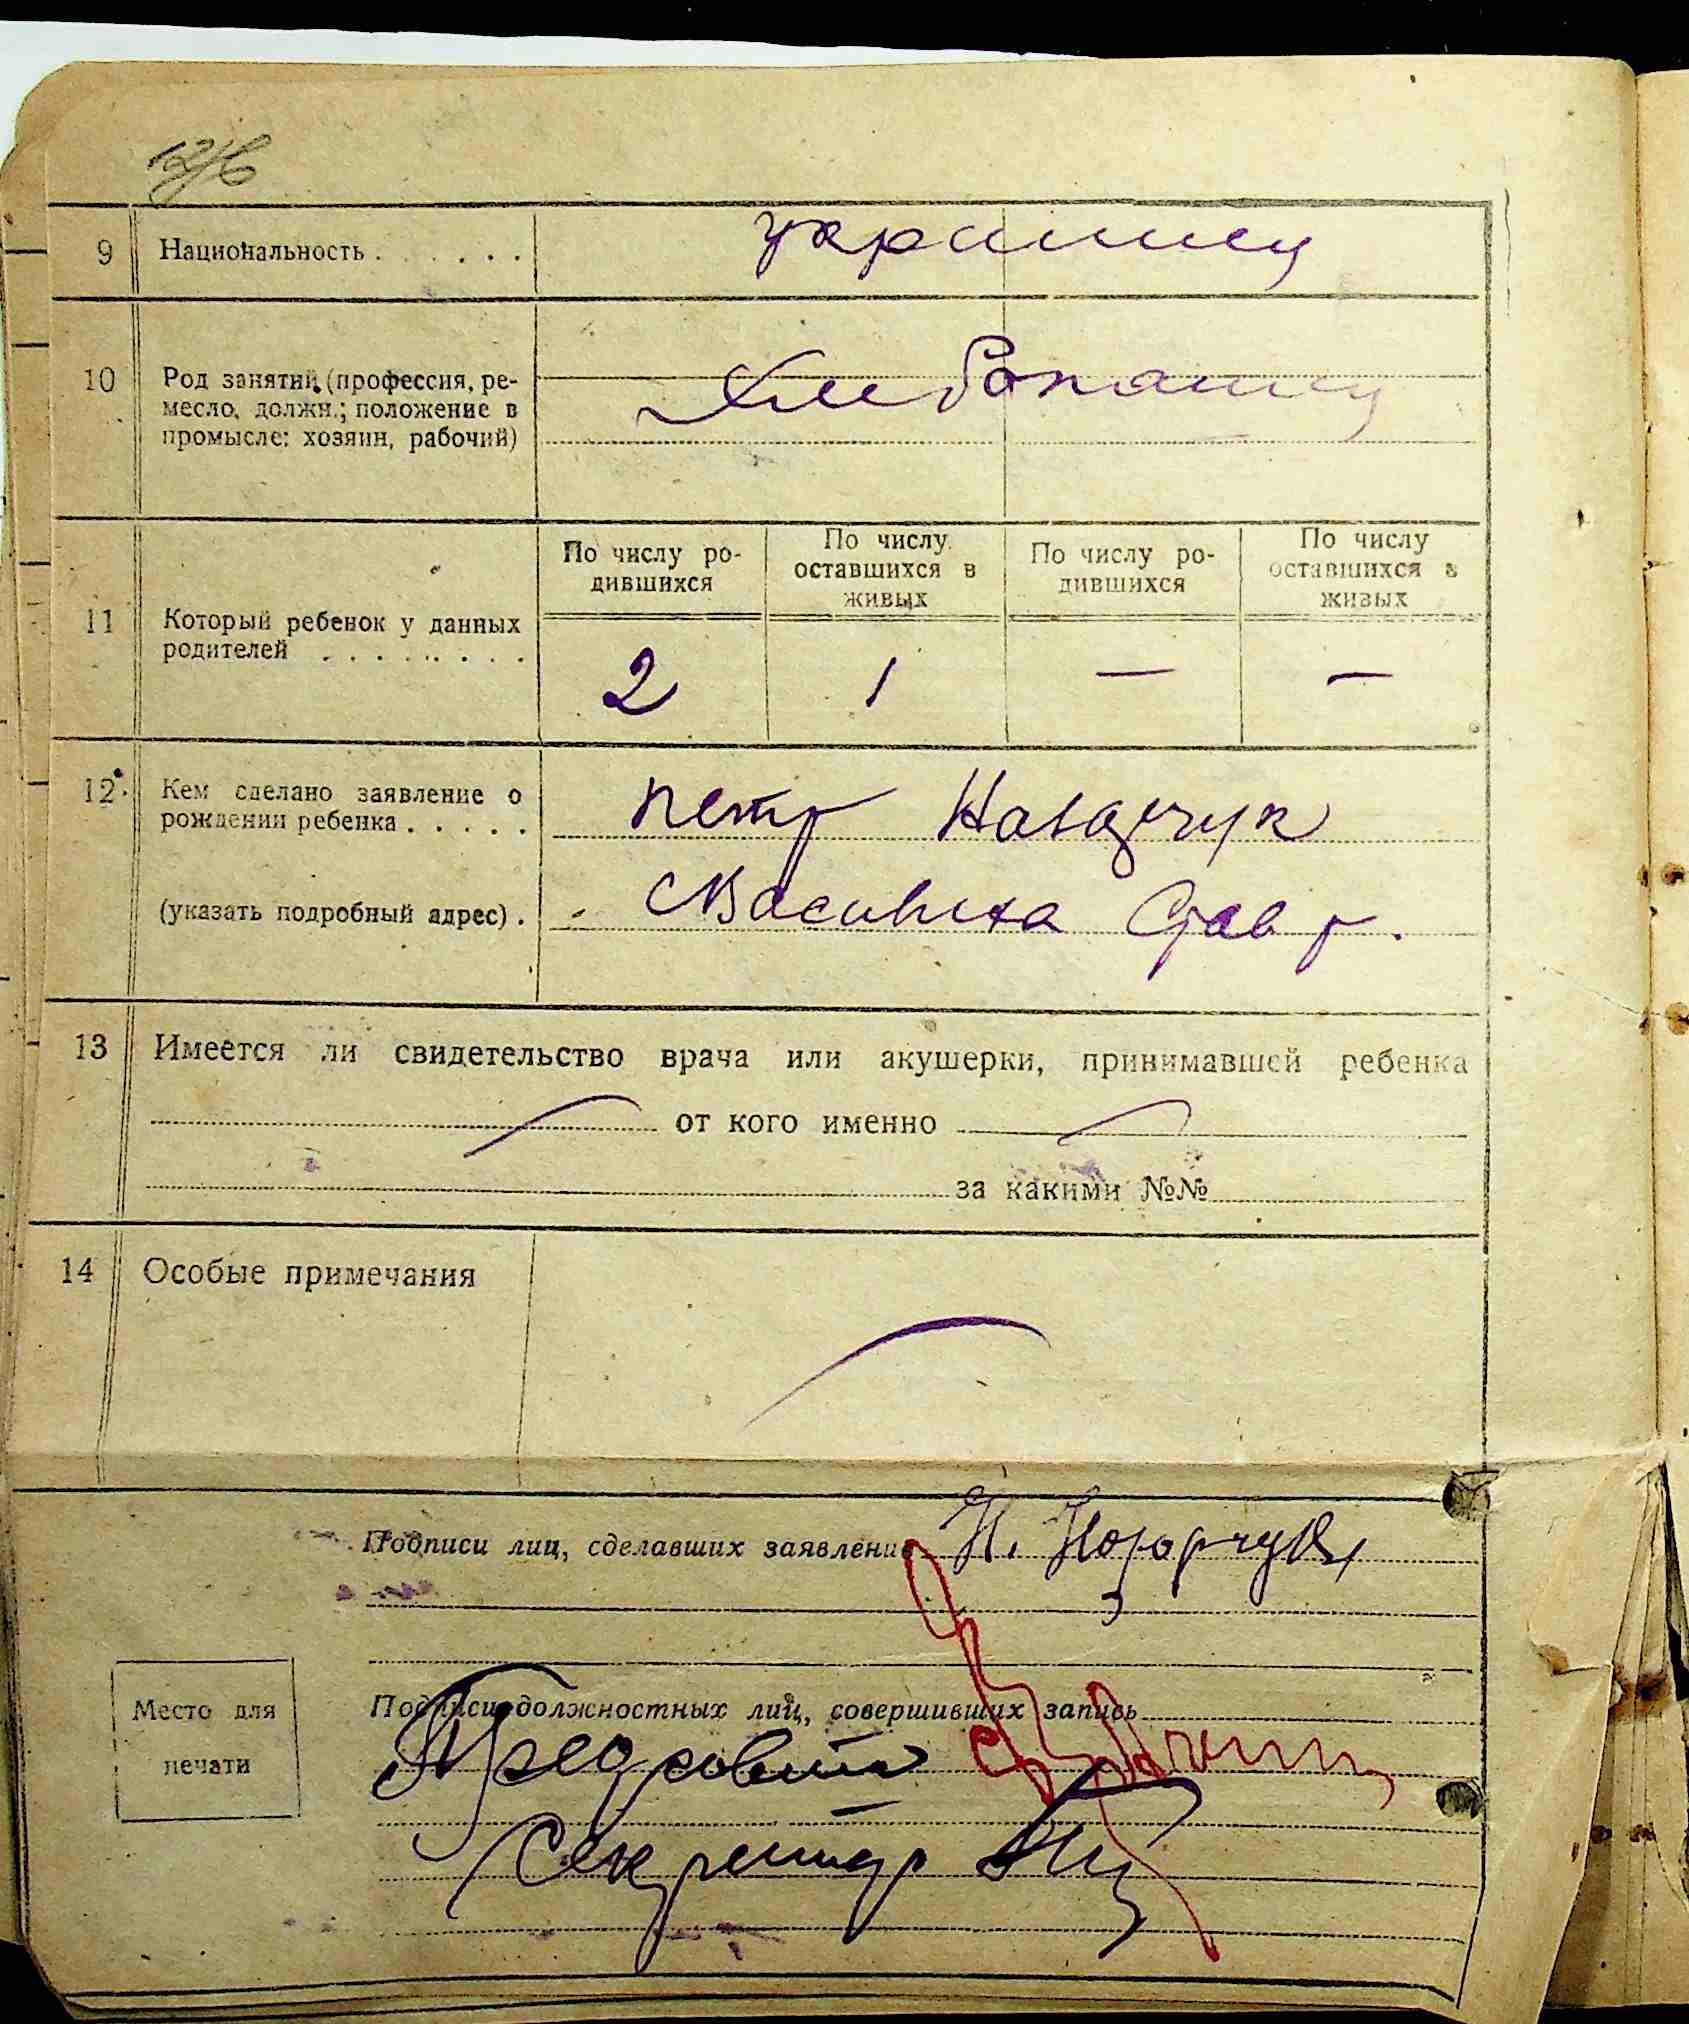 9 Национальность . . . . . . украинец
10 Род занятий (профессия, ре-
месло, должн.; положение в
промысле: хозяин, рабочий)
Хлебопашец
По числу ро-
дившихся
По числу
оставшихся в
живых
По числу ро-
дившихся
По числу
оставшихся в
живых
11 Который ребенок у данных
родителей . . . . . . . .
2 1 — —
12. Кем сделано заявление о
рождении ребенка . . . . .
Петр
(указать подробный адрес) .
13 Имеется ли свидетельство врача или акушерки, принимавшей ребенка
от кого именно
за какими №№
14 Особые примечания
Подписи лиц, сделавших заявление
Место для
печати
Подписи должностных лиц, совершивших запись
Предсовета
Секретарь